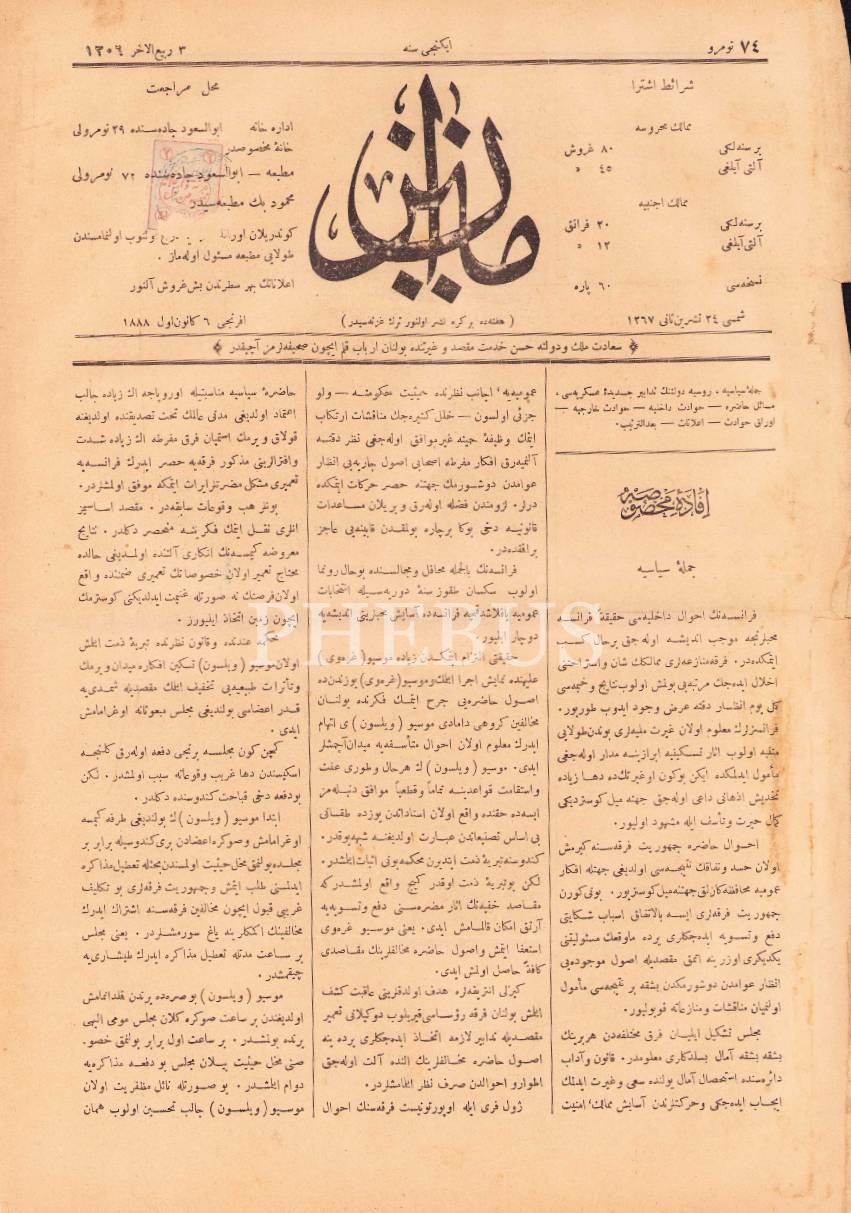 ٧٤ نومرو
ایکنجی سنه
٣ ربیع الآخر ١٣٠٦
شرائط اشترا
ممالك محروسه
بر سنه لكی ٨٠ غروش
آلتی آیلغی ٤٥ »
ممالك اجنبیه
بر سنه لكی ٢٠ فرانق
آلتی آیلغی ١٢ »
نسخه سی ٦٠ پاره
محل مراجعت
اداره خانه ابوالسعود جاده سنده ٢٩ نومرولی
خانهٔ مخصوصدر
مطبعه — ابوالسعود جاده سنده ٧٢ نومرولی
محمود بك مطبعه سیدر
كوندریلان اوراق
طولایی مطبعه مسئول اوله ماز
اعلاناتك بهر سطرندن بش غروش آلنور
میزان
شمسی ٢٤ تشرین ثانی ١٢٦٧
( هفته ده بر كره نشر اولنور ترك غزته سیدر )
افرنجی ٦ كانون اول ١٨٨٨
سعادت ملك و دولته حسن خدمت مقصد و غیرتنده بولنان ارباب قلم ایچون صحیفه لرمز آچیقدر
جملهٔ سیاسیه ، روسیه دولتنك تدابیر جدیدهٔ عسكریه سی ،
مسائل حاضره — حوادث داخلیه — حوادث خارجیه —
اوراق حوادث — اعلانات — بعدالترتیب.
افادهٔ مخصوصه
جملهٔ سیاسیه
فرانسه نك احوال داخلیه سی حقیقةً فرانسه
محبلرنجه موجب اندیشه اوله جق برحال كسب
ایتمكده در. فرقه منازعه لری ممالكك شان و استراحتنی
اخلال ایده جك مرتبه یی بولمش اولوب نتایج وخیمه سی
كل یوم انظار دقته عرض وجود ایدوب طورییور.
فرانسزلرك معلوم اولان غیرت ملیه لری بوندن طولایی
متنبه اولوب آثار تسكینیه ابرازینه مدار اوله جغی
مأمول ایدلمكده ایكن بوكون او غیرتك ده دها زیاده
تخدیش اذهانی داعی اوله جق جهته میل كوستردیكی
كمال حیرت و تأسف ایله مشهود اولیور.
احوال حاضره جمهوریت فرقه سنه كیرمش
اولان حسد و نفاقك نتیجه سی اولدیغی جهتله افكار
عمومیه محافظه كارلق جهتنه میل كوستریور. بونی كورن
جمهوریت فرقه لری ایسه بالاتفاق اسباب شكایتی
دفع و تسویه ایده جكلری یرده ماوقعك مسئولیتنی
یكدیكری اوزرینه آتمق مقصدیله اصول موجوده یی
انظار عوامدن دوشورمكدن بشقه بر نتیجه سی مأمول
اولنمیان مناقشات و منازعاته قویولیور.
مجلس تشكیل ایلیان فرق مختلفه دن هر برینك
بشقه بشقه آمال بسلدكلری معلومدر. قانون و آداب
دائره سنده استحصال آمال یولنده سعی و غیرت ایدلمك
ایجاب ایده جكی و حركتلرندن آسایش ممالك، امنیت
عمومیه، اجانب نظرنده حیثیت حكومته — ولو
جزئی اولسون — خلل كتیره جك مناقشات ارتكاب
ایتمك وظیفهٔ حمیته غیر موافق اوله جغی نظر دقته
آلنمیه رق افكار مفرطه اصحابی اصول جاریه یی انظار
عوامدن دوشورمك جهتنه حصر حركات ایتمكده
درلر. لزومندن فضله اوله رق ویریلان مساعدات
قانونیه دخی بوكا برچاره بولمقدن قابینه یی عاجز
براقمقده در.
فرانسه نك بالجمله محافل و مجالسنده بو حال رونما
اولوب سكسان طقوز سنهٔ دوریه سیله انتخابات
عمومیه یاقلاشدقجه فرانسه ده آسایش محبلرینی اندیشه یه
دوچار ایلیور.
حقیقتی التزام ایتمكدن زیاده موسیو (غره وی)
علیهنده نمایش اجرا ایتمك و موسیو (غره وی) یوزندن ده
اصول حاضره یی جرح ایتمك فكرنده بولنان
مخالفین كروهی دامادی موسیو (ویلسون) ی اتهام
ایدرك معلوم اولان احوال متأسفه یه میدان آچمشلر
ایدی. موسیو (ویلسون) ك هر حال و طوری عفت
و استقامت قواعدینه تماماً و قطعیاً موافق دنیله مز
ایسه ده حقنده واقع اولان اسناداتدن یوزده طقسانی
بی اساس تصنیعاتدن عبارت اولدیغنه شبهه یوقدر.
كندوسنه تبریهٔ ذمت ایتدیرن محكمه بونی اثبات ایتمشدر.
لكن بو تبریهٔ ذمت او قدر كیج واقع اولمشدر كه
مقاصد خفیه نك آثار مضره سنی دفع و تسویه یه
آرتق امكان قالمامش ایدی. یعنی موسیو غره وی
استعفا ایتمش و اصول حاضره مخالفلرینك مقاصدی
كافهً حاصل اولمش ایدی.
كیزلی انتریقه لره هدف اولدقلرینی عاقبت كشف
ایتمش بولنان فرقه رؤساسی قیریلوب دوكیلانی تعمیر
مقصدیله تدابیر لازمه اتخاذ ایده جكلری یرده ینه
اصول حاضره مخالفلرینك النده آلت اوله جق
اطوار و احوالدن صرف نظر ایتمامشلردر.
ژول فری ایله اوپورتونیست فرقه سنك احوال
حاضرهٔ سیاسیه مناسبتیله اوروپاجه اك زیاده جالب
اعتماد اولدیغی مدنی عالمك تحت تصدیقنده اولدیغنه
قولاق ویرمك استمیان فرق مفرطه اك زیاده شدت
و افترالرینی مذكور فرقه یه حصر ایدرك فرانسه یه
تعمیری مشكل مضرتلر ایراث ایتمكه موفق اولمشلردر.
بونلر هب وقوعات سابقه در. مقصد اساسیمز
انلری نقل ایتمك فكرینه منحصر دكلدر. نتایج
معروضه كیمسه نك انكاری آلتنده اولمدیغی حالده
محتاج تعمیر اولان خصوصاتك تعمیری ضمننده واقع
اولان فرصتك نه صورتله غنیمت ایدلدیكنی كوسترمك
ایچون زمین اتخاذ ایلیورز.
محكمه عندنده و قانون نظرنده تبریهٔ ذمت ایتمش
اولان موسیو (ویلسون) تسكین افكاره میدان ویرمك
و تأثرات طبیعیه یی تخفیف ایتمك مقصدیله شمدی یه
قدر اعضاسی بولندیغی مجلس مبعوثانه اوغرامامش
ایدی.
كچن كون مجلسه برنجی دفعه اوله رق كلنجه
اسكیسندن دها غریب وقوعاته سبب اولمشدر. لكن
بو دفعه دخی قباحت كندوسنده دكلدر.
ابتدا موسیو (ویلسون) ك بولندیغی طرفه كیمسه
اوغرامامش و صوكره اعضادن بری كندوسیله برابر بر
مجلسده بولنمق مخل حیثیت اولمسندن بحثله تعطیل مذاكره
ایدلمسنی طلب ایتمش و جمهوریت فرقه لری بو تكلیف
غریبی قبول ایچون مخالفین فرقه سنه اشتراك ایدرك
مخالفینك اكمكلرینه یاغ سورمشلردر. یعنی مجلس
بر ساعت مدتله تعطیل مذاكره ایدرك طیشاری یه
چیقمشدر.
موسیو (ویلسون) بو صره ده یرندن قلدانمامش
اولدیغندن بر ساعت صوكره كلان مجلس مومی الیهی
یرنده بولمشدر. بر ساعت اول برابر بولنمق خصو
صنی مخل حیثیت بیلان مجلس بو دفعه مذاكره یه
دوام ایتمشدر. بو صورتله نائل مظفریت اولان
موسیو (ویلسون) جالب تحسین اولوب همان
PHEBUS